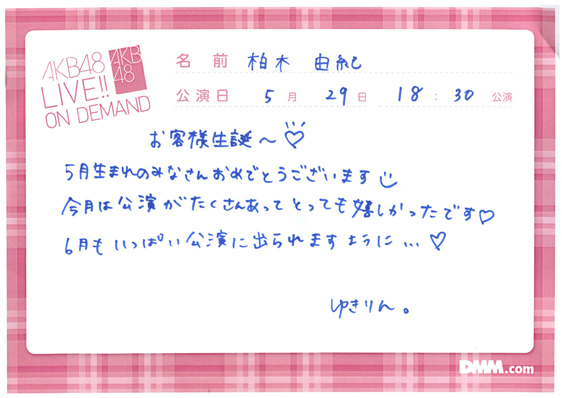 AKB48
LIVE!!
ON DEMAND
AKB
48
名前 柏木 由紀
公演日 5月 29日 18:30 公演
お客様生誕〜♡
5月生まれのみなさんおめでとうございます
今月は公演がたくさんあってとっても嬉しかったです♡
6月もいっぱい公演に出られますように…♡
ゆきりん。
DMM.com